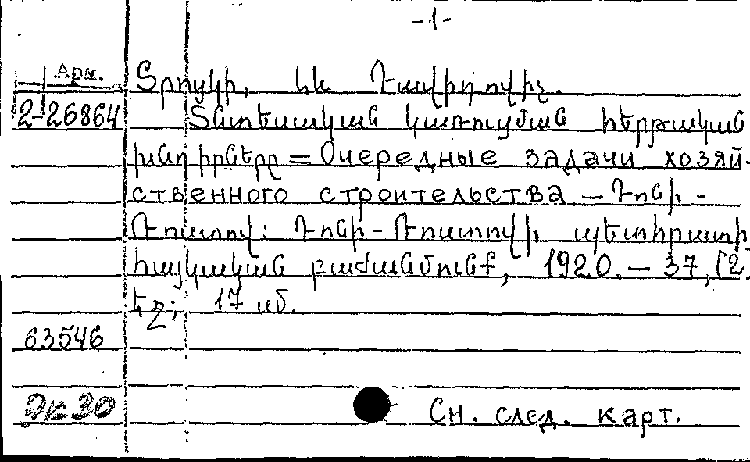 -1-
Арм.
Տրոցկի, Լև Դավիդովիչ.
2-26864 Տնտեսական կառուցման հերթական
խնդիրները = Очередные задачи хозяй-
ственного строительства. – Դոնի-
Ռոստով: Դոնի-Ռոստովի պետհրատի
հայկական բաժանմունք, 1920. – 37, [2
եջ; 17 սմ.
63546
Дк30
Сн. след. карт.